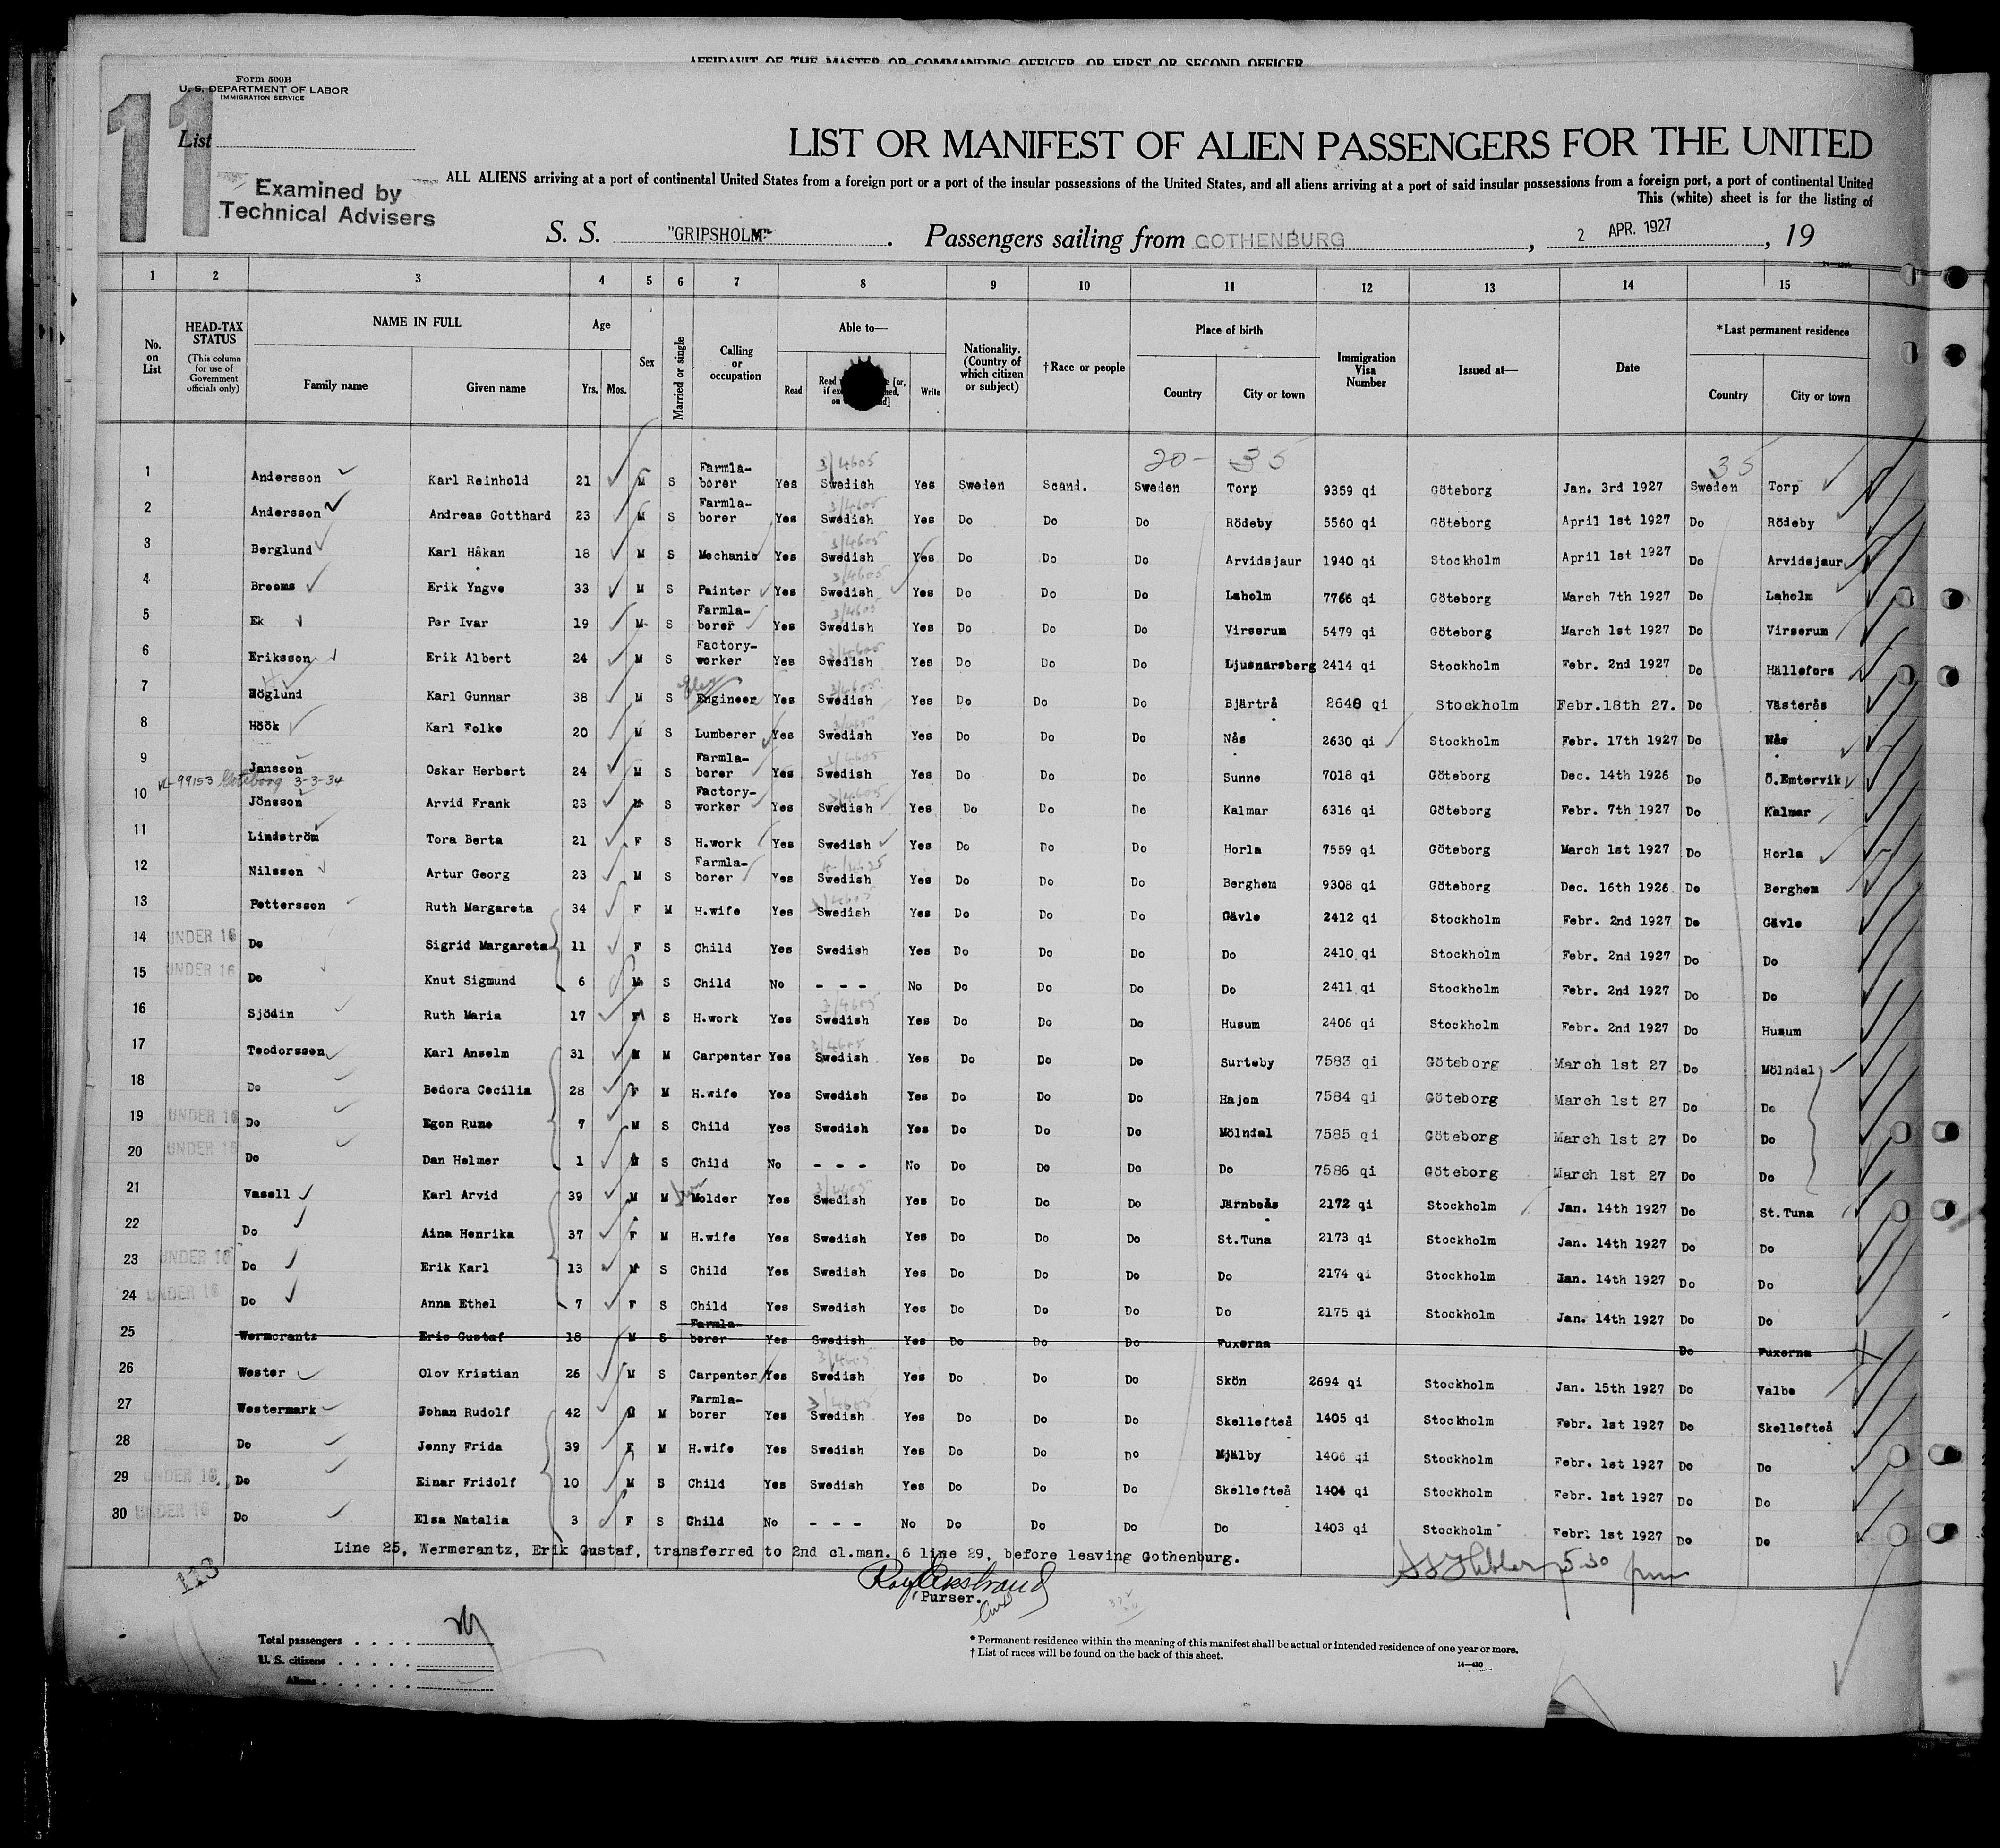 AFFIDAVIT OF THE MASTER OR COMMANDING OFFICER, OR FIRST OR SECOND OFFICER
Form 500B
U. S. DEPARTMENT OF LABOR
IMMIGRATION SERVICE
11
List
LIST OR MANIFEST OF ALIEN PASSENGERS FOR THE UNITED
Examined by
Technical Advisers
ALL ALIENS arriving at a port of continental United States from a foreign port or a port of the insular possessions of the United States, and all aliens arriving at a port of said insular possessions from a foreign port, a port of continental United
This (white) sheet is for the listing of
S. S. "GRIPSHOLM". Passengers sailing from GOTHENBURG, 2 APR. 1927, 19
1 2 3 4 5 6 7 8 9 10 11 12 13 14 15
No. on List HEAD-TAX STATUS (This column for use of Government officials only) NAME IN FULL Family name Given name Age Yrs. Mos. Sex Married or single Calling or occupation Able to— Read Read [or, if on Write Nationality. (Country of which citizen or subject) †Race or people Place of birth Country City or town Immigration Visa Number Issued at— Date *Last permanent residence Country City or town
20- 35 35
1 Andersson Karl Reinhold 21 M S Farmla-borer Yes 3/4605 Swedish Yes Sweden Scand. Sweden Torp 9359 qi Göteborg Jan. 3rd 1927 Sweden Torp
2 Andersson Andreas Gotthard 23 M S Farmla-borer Yes 3/4605 Swedish Yes Do Do Do Rödeby 5560 qi Göteborg April 1st 1927 Do Rödeby
3 Berglund Karl Håkan 18 M S Mechanic Yes 3/4605 Swedish Yes Do Do Do Arvidsjaur 1940 qi Stockholm April 1st 1927 Do Arvidsjaur
4 Brooms Erik Yngve 33 M S Painter Yes 3/4605 Swedish Yes Do Do Do Laholm 7766 qi Göteborg March 7th 1927 Do Laholm
5 Ek Per Ivar 19 M S Farmla-borer Yes 3/4605 Swedish Yes Do Do Do Virserum 5479 qi Göteborg March 1st 1927 Do Virserum
6 Eriksson Erik Albert 24 M S Factory-worker Yes 3/4605 Swedish Yes Do Do Do Ljusnarsberg 2414 qi Stockholm Febr. 2nd 1927 Do Hällefors
7 Höglund Karl Gunnar 38 M S Engineer Yes 3/4605 Swedish Yes Do Do Do Bjärtrå 2640 qi Stockholm Febr.18th 27. Do Västerås
8 Höök Karl Folke 20 M S Lumberer Yes 3/4605 Swedish Yes Do Do Do Nås 2630 qi Stockholm Febr. 17th 1927 Do Nås
9 Jansson Oskar Herbert 24 M S Farmla-borer Yes 3/4605 Swedish Yes Do Do Do Sunne 7018 qi Göteborg Dec. 14th 1926 Do Ö.Emtervik
VL-99153 Göteborg 3-3-34
10 Jönsson Arvid Frank 23 M S Factory-worker Yes 3/4605 Swedish Yes Do Do Do Kalmar 6316 qi Göteborg Febr. 7th 1927 Do Kalmar
11 Lindström Tora Berta 21 F S H.work Yes Swedish Yes Do Do Do Horla 7559 qi Göteborg March 1st 1927 Do Horla
12 Nilsson Artur Georg 23 M S Farmla-borer Yes Swedish Yes Do Do Do Berghem 9308 qi Göteborg Dec. 16th 1926 Do Berghem
13 Pettersson Ruth Margareta 34 F M H.wife Yes 3/4605 Swedish Yes Do Do Do Gävle 2412 qi Stockholm Febr. 2nd 1927 Do Gävle
14 UNDER 16 Do Sigrid Margareta 11 F S Child Yes Swedish Yes Do Do Do Do 2410 qi Stockholm Febr. 2nd 1927 Do Do
15 UNDER 16 Do Knut Sigmund 6 M S Child No - - - No Do Do Do Do 2411 qi Stockholm Febr. 2nd 1927 Do Do
16 Sjödin Ruth Maria 17 F S H.work Yes 3/4605 Swedish Yes Do Do Do Husum 2406 qi Stockholm Febr. 2nd 1927 Do Husum
17 Teodorsson Karl Anselm 31 M M Carpenter Yes 3/4605 Swedish Yes Do Do Do Surteby 7583 qi Göteborg March 1st 27 Do Mölndal
18 Do Bedora Cecilia 28 F M H.wife Yes Swedish Yes Do Do Do Hajom 7584 qi Göteborg March 1st 27 Do Do
19 UNDER 16 Do Egon Rune 7 M S Child Yes Swedish Yes Do Do Do Mölndal 7585 qi Göteborg March 1st 27 Do Do
20 UNDER 16 Do Dan Helmer 1 M S Child No - - - No Do Do Do Do 7586 qi Göteborg March 1st 27 Do Do
21 Vasell Karl Arvid 39 M M Molder Yes 3/4605 Swedish Yes Do Do Do Järnboås 2172 qi Stockholm Jan. 14th 1927 Do St.Tuna
22 Do Aina Henrika 37 F M H.wife Yes Swedish Yes Do Do Do St.Tuna 2173 qi Stockholm Jan. 14th 1927 Do Do
23 UNDER 16 Do Erik Karl 13 M S Child Yes Swedish Yes Do Do Do Do 2174 qi Stockholm Jan. 14th 1927 Do Do
24 UNDER 16 Do Anna Ethel 7 F S Child Yes Swedish Yes Do Do Do Do 2175 qi Stockholm Jan. 14th 1927 Do Do
25 Wermcrantz Eric Gustaf 18 M S Farmla-borer Yes Swedish Yes Do Do Do Fuxerna Do Fuxerna
26 Wester Olov Kristian 26 M S Carpenter Yes 3/4605 Swedish Yes Do Do Do Skön 2694 qi Stockholm Jan. 15th 1927 Do Valbo
27 Westermark Johan Rudolf 42 M M Farmla-borer Yes 3/4605 Swedish Yes Do Do Do Skellefteå 1405 qi Stockholm Febr. 1st 1927 Do Skellefteå
28 Do Jenny Frida 39 F M H.wife Yes Swedish Yes Do Do Do Mjälby 1406 qi Stockholm Febr. 1st 1927 Do Do
29 UNDER 16 Do Einar Fridolf 10 M S Child Yes Swedish Yes Do Do Do Skellefteå 1404 qi Stockholm Febr. 1st 1927 Do Do
30 UNDER 16 Do Elsa Natalia 3 F S Child No - - - No Do Do Do Do 1403 qi Stockholm Febr. 1st 1927 Do Do
Line 25, Wermcrantz, Erik Gustaf, transferred to 2nd cl.man. 6 line 29, before leaving Gothenburg.
113
5-30 pm
Purser.
Total passengers
U. S. citizens
Aliens
* Permanent residence within the meaning of this manifest shall be actual or intended residence of one year or more.
† List of races will be found on the back of this sheet.
14—430